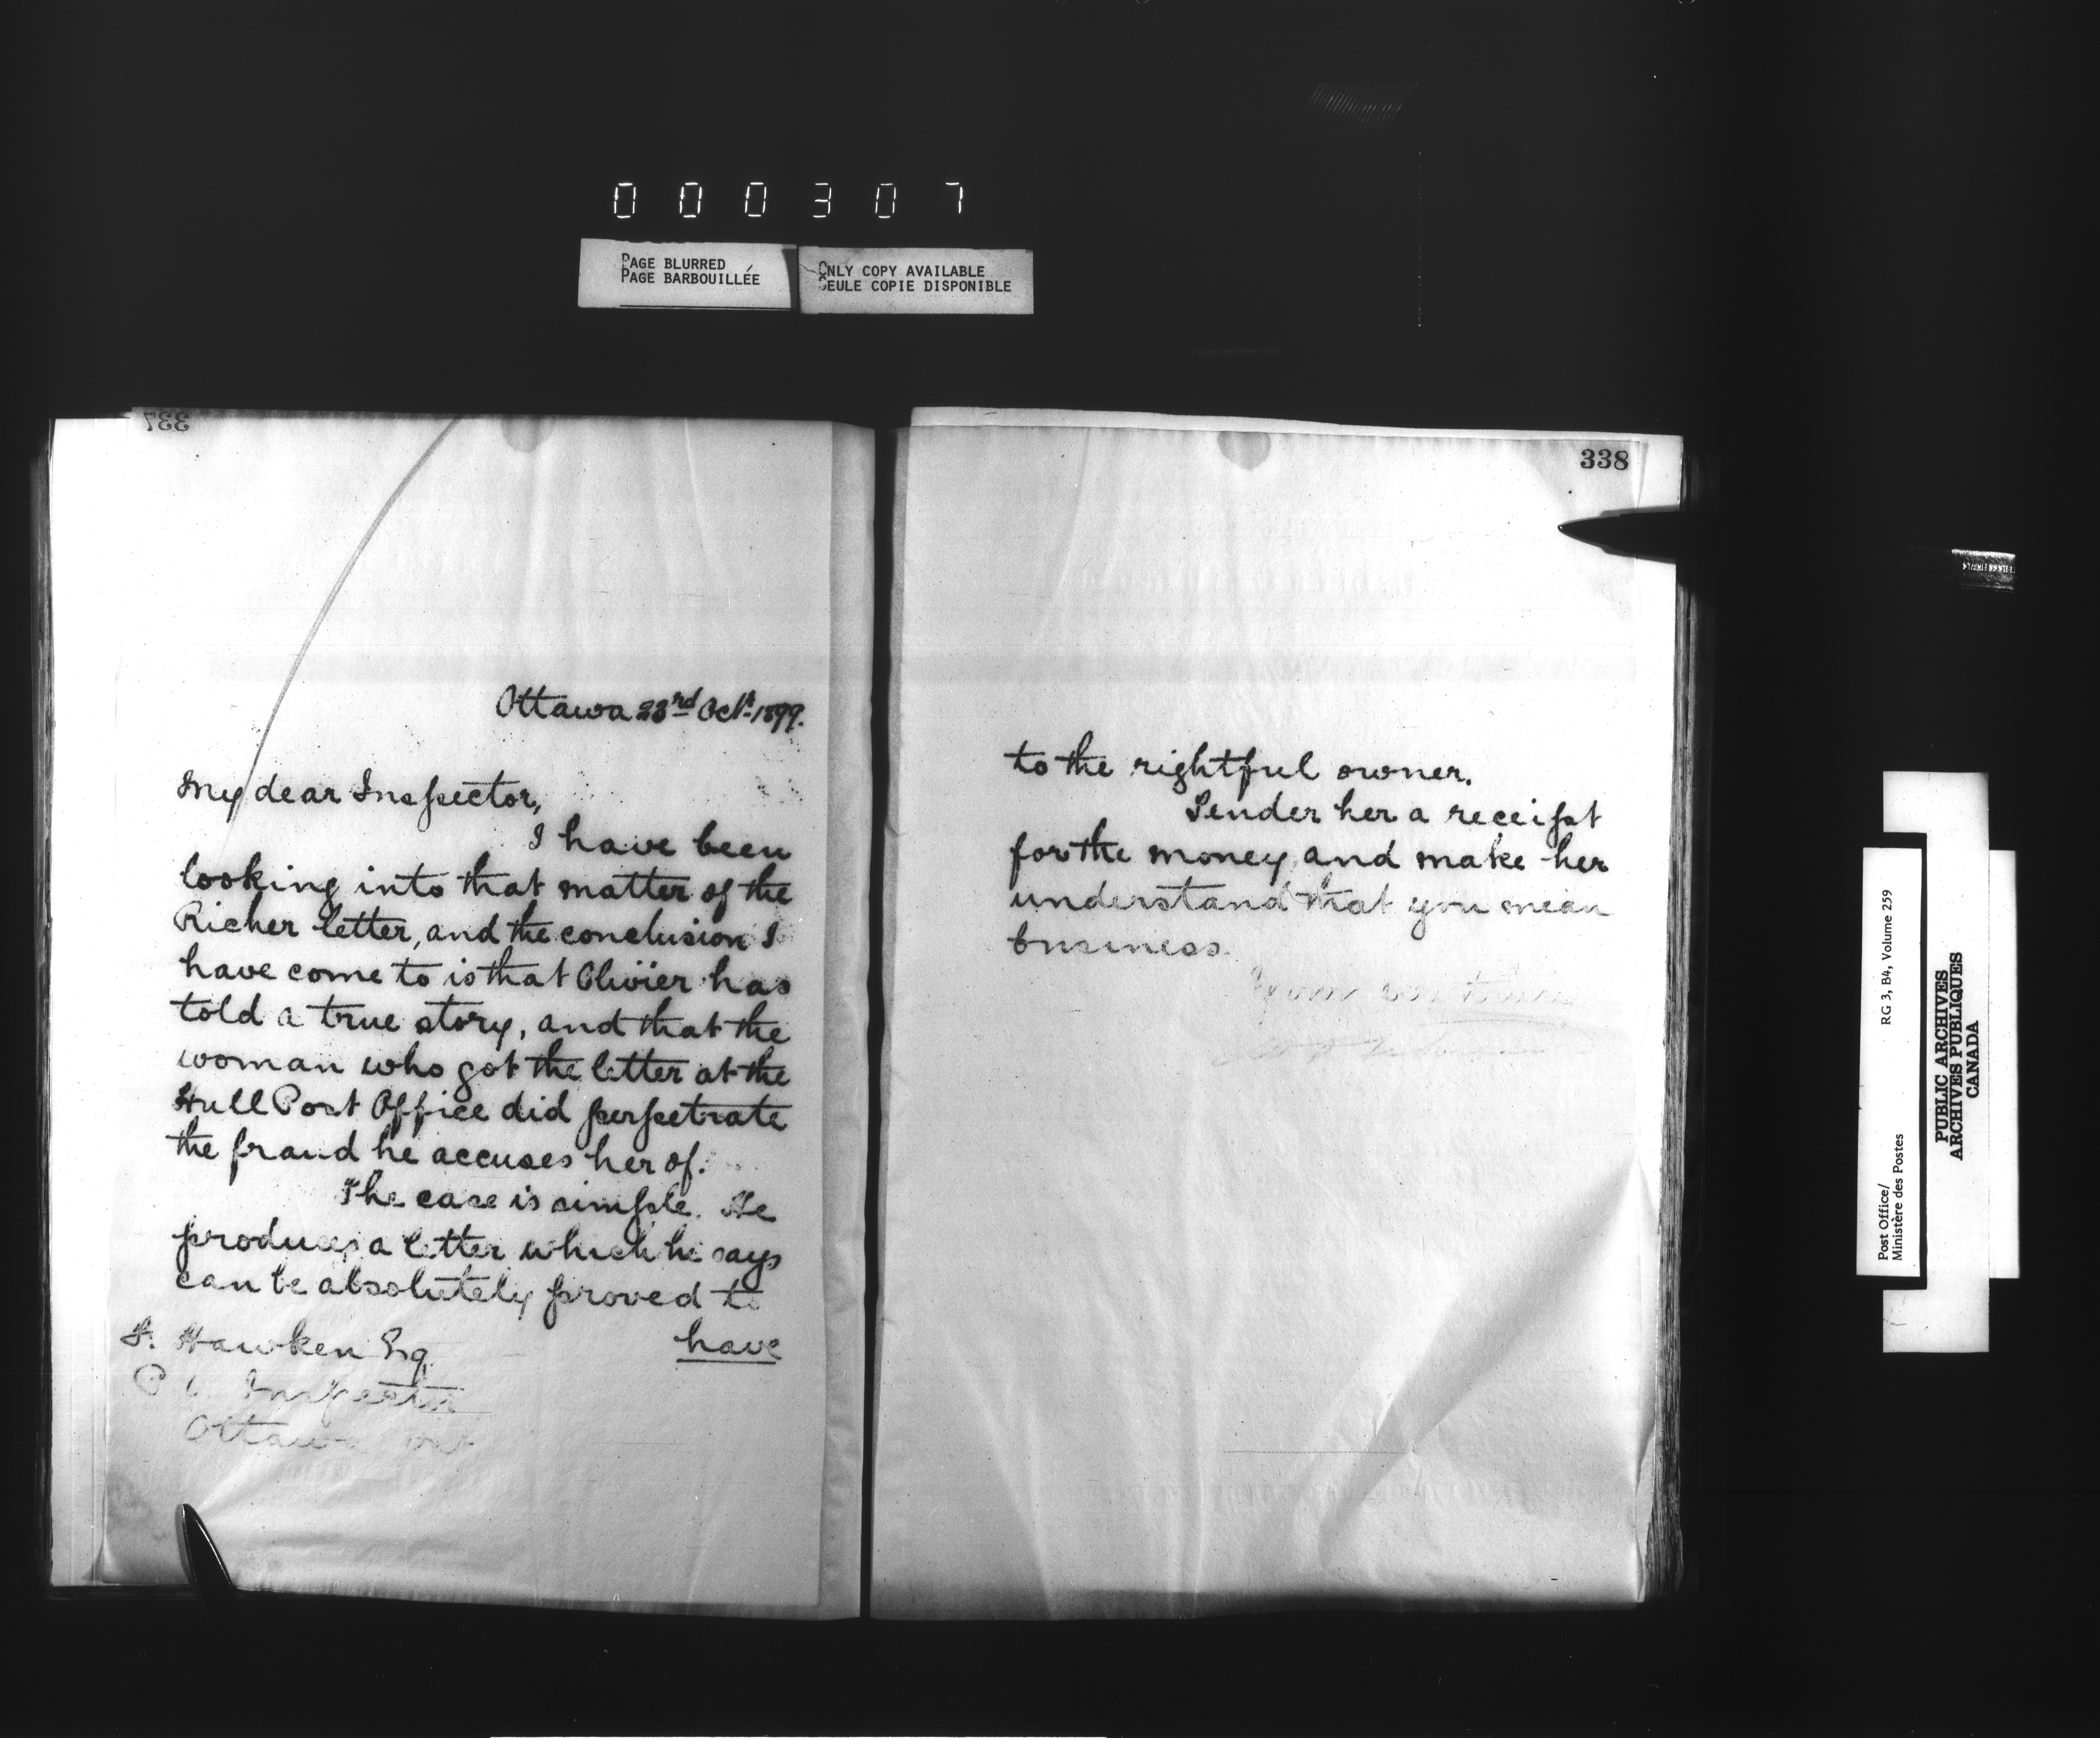 000307
PAGE BLURRED
PAGE BARBOUILLÉE
ONLY COPY AVAILABLE
SEULE COPIE DISPONIBLE
337
Ottawa 23rd Oct. 1899.
My dear Inspector,
I have been
looking into that matter of the
Richer letter, and the conclusion I
have come to is that Olivier has
told a true story, and that the
woman who got the letter at the
Hull Post Office did perpetrate
the fraud he accuses her of.
The case is simple. He
produces a letter which he says
can be absolutely proved to
have
Hawken Esq
P. O. Inspector
Ottawa Ont
338
to the rightful owner.
Tender her a receipt
for the money, and make her
understand that you mean
business.
Yours very truly
Post Office/
Ministère des Postes
RG 3, B4, Volume 259
PUBLIC ARCHIVES
ARCHIVES PUBLIQUES
CANADA